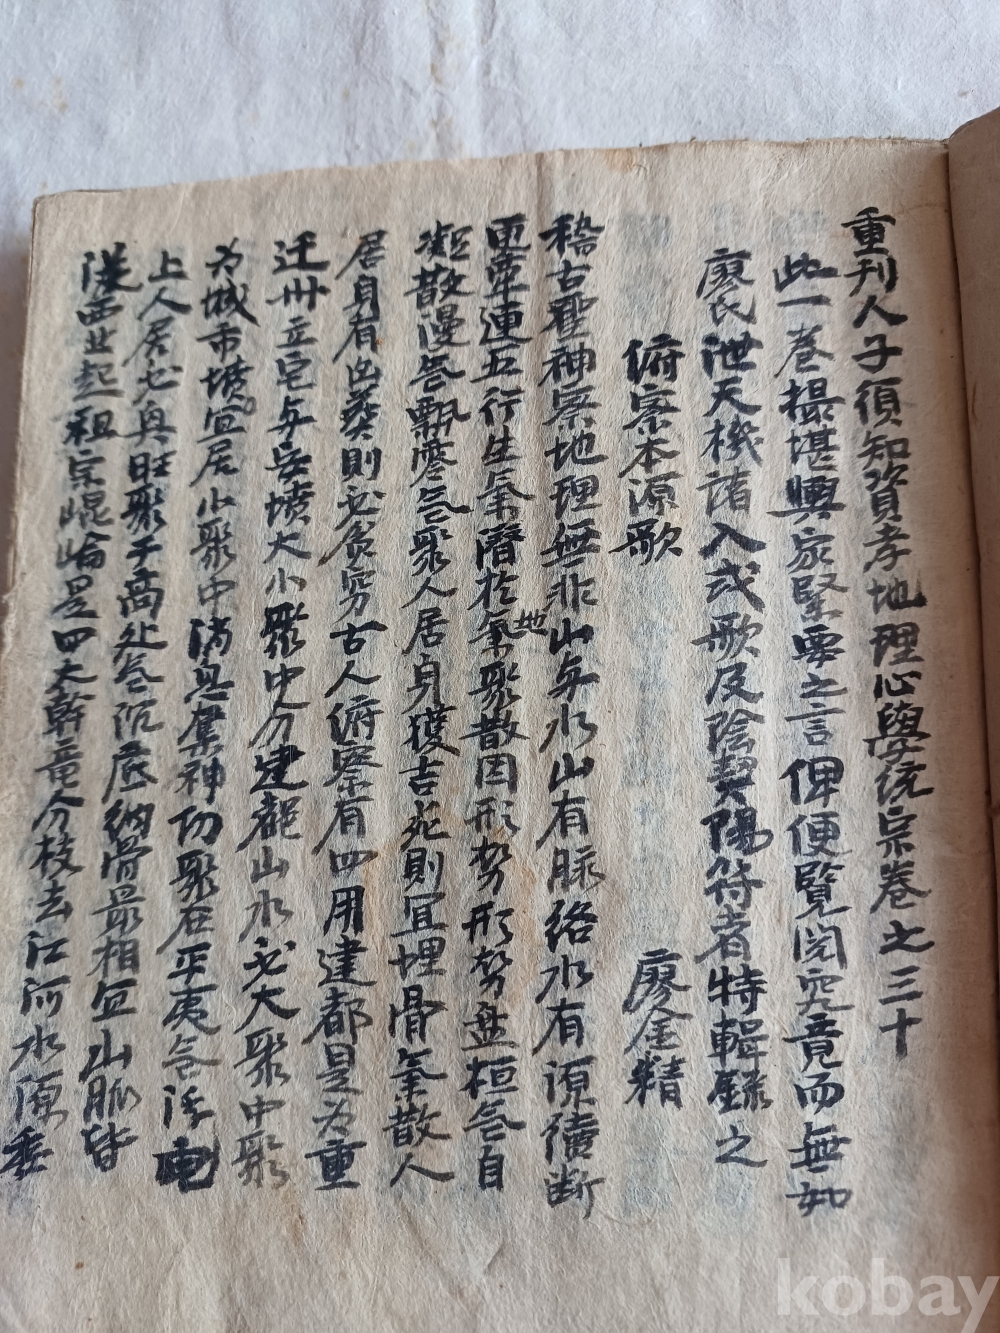 重刊人子須知資孝地理心學统宗卷之三十
此一卷撮堪輿家緊要之言俾便覧閲究竟而無如
廖氏泄天機諸入式歌及陰契陽符者特輯錄之
俯察本源歌
廖金精
稽古聖神察地理無非山与水山有脉络水有源續断
更牵連五行生氣隨於地氣聚散因形势形势盘桓氣自
凝散漫氣飄零氣聚人居身獲吉死則宜埋骨氣散人
居身有凶葵則必貧穷古人俯察有四用建都是为重
迁州立宅与安墳大小聚中分建都山水必大聚中聚
为城市墳宅居小聚中消息奪神功聚在平夷氣浮
上人居必興旺聚于高处氣沉底纳骨最相宜山脈皆
從西北起祖宗崐崘是四大幹竜分枝去江河水源
kobay